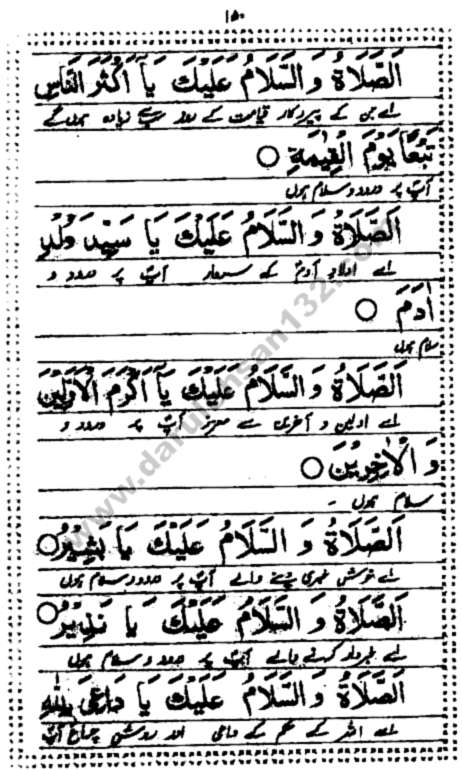 ۱۵۰
اَلصَّلَاةُ وَ السَّلَامُ عَلَيْكَ يَآ اَكْثَرَ النَّاسِ
اے جن کے پیروکار قیامت کے روز سب سے زیادہ ہونگے
تَبَعًا يَوْمَ الْقِيٰمَةِ ○
آپؐ پر درود و سلام ہوں
اَلصَّلَاةُ وَ السَّلَامُ عَلَيْكَ يَا سَيِّدَ وُلْدِ
اے اولادِ آدمؑ کے سردار آپؐ پر درود و
اٰدَمَ ○
سلام ہوں
اَلصَّلَاةُ وَ السَّلَامُ عَلَيْكَ يَآ اَكْرَمَ الْاَوَّلِيْنَ
اے اولین و آخرین سے معزز آپؐ پر درود و
وَ الْاٰخِرِيْنَ ○
سلام ہوں ۔
اَلصَّلَاةُ وَ السَّلَامُ عَلَيْكَ يَا بَشِيْرُ ○
اے خوشخبری دینے والے آپؐ پر درود و سلام ہوں
اَلصَّلَاةُ وَ السَّلَامُ عَلَيْكَ يَا نَذِيْرُ ○
اے خبردار کرنے والے آپؐ پر درود و سلام ہوں
اَلصَّلَاةُ وَ السَّلَامُ عَلَيْكَ يَا دَاعِيَ بِاللّٰهِ
اے اللہ کے حکم کے داعی اور روشن چراغ آپؐ
www.darulehsan132.com